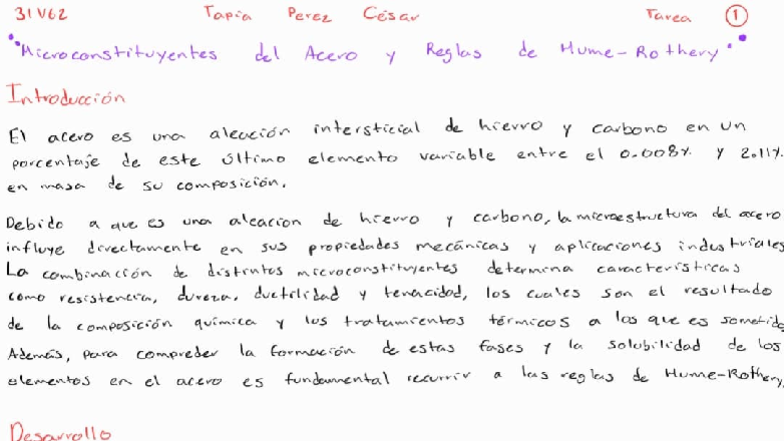 31V62 Tapia Perez César Tarea 1
"Microconstituyentes del Acero y Reglas de Hume-Rothery"
Introducción
El acero es una aleación intersticial de hierro y carbono en un
porcentaje de este último elemento variable entre el 0.008% y 2.11%
en masa de su composición.
Debido a que es una aleacion de hierro y carbono, la microestructura del acero
influye directamente en sus propiedades mecánicas y aplicaciones industriales
La combinación de distintos microconstituyentes determina características
como resistencia, dureza, ductilidad y tenacidad, los cuales son el resultado
de la composición química y los tratamientos térmicos a los que es sometido
Además, para compreder la formación de estas fases y la solubilidad de los
elementos en el acero es fundamental recurrir a las reglas de Hume-Rothery,
Desarrollo